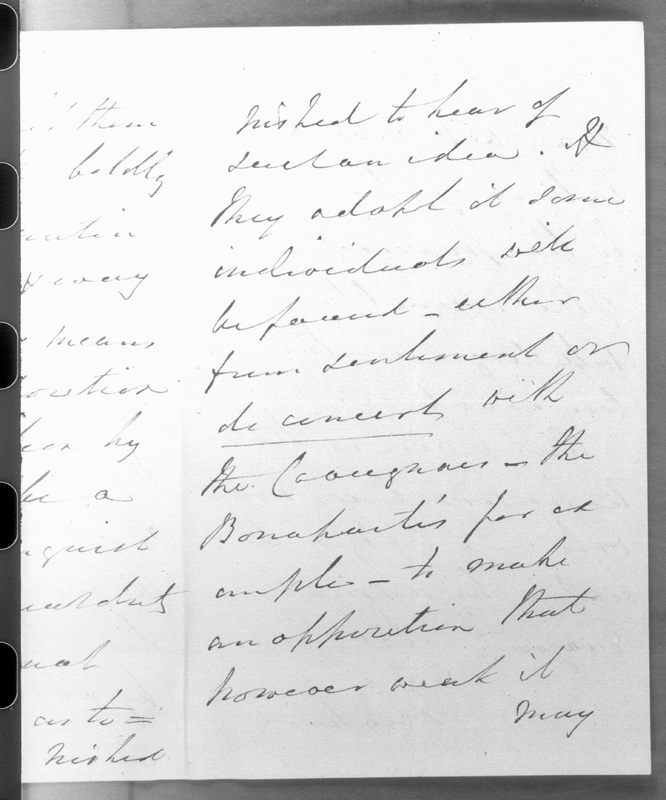 them
boldly
way
means
by
be a
as to=
nished
nished to hear of
such an idea. If
they adopt it some
individuals will
be found - either
from sentiment or
de concert with
the Cavaignacs - the
Bonaparte's for ex
ample - to make
an opposition that
however weak it
may